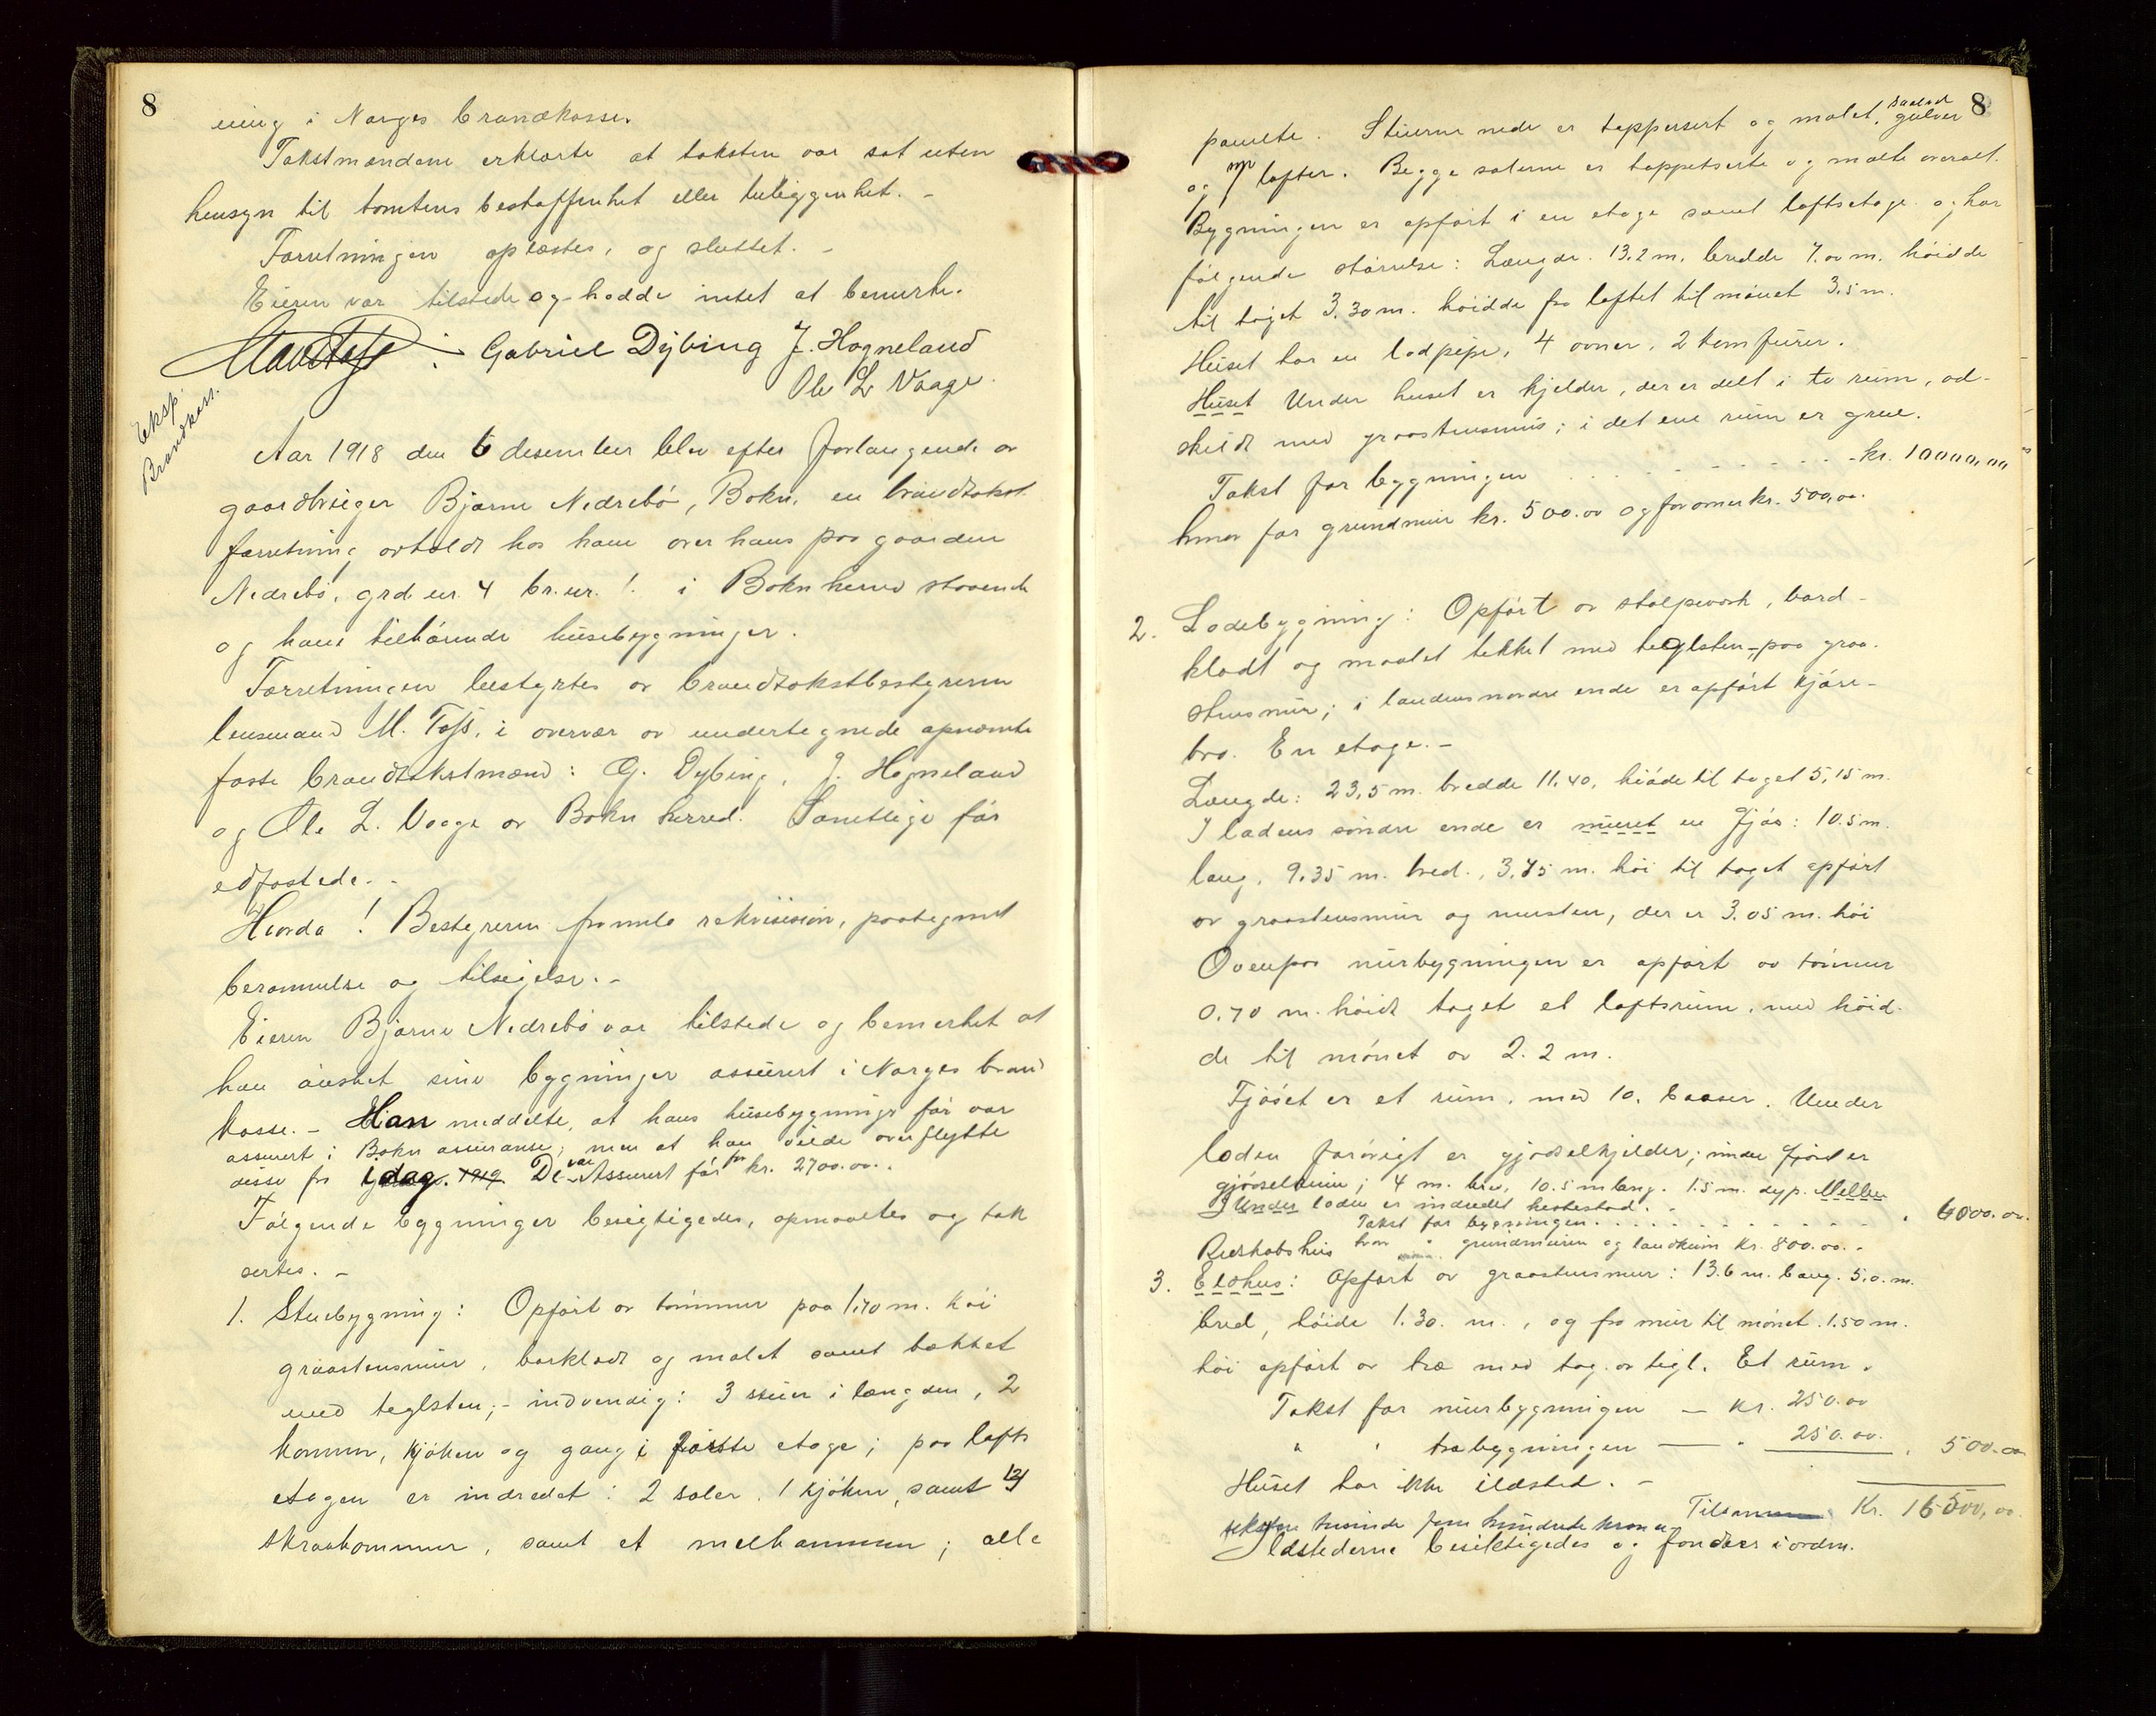 8
ning i Norges brandkasse.
Takstmændene erklærte at taksten var sat uten
hensyn til tomtens beskaffenhet eller beliggenhet. -
Forretningen oplæstes, og sluttet. -
Eieren var tilstede og hadde intet at bemerke.
Gabriel Dybing J. Hogneland
Ole L Vaage.
Eksp.
Brandkass.
Aar 1918 den 6 desember blev efter forlangende av
gaardbruger Bjarne Nedrebø, Bokn, en brandtakst
forretning avholdt hos ham over hans paa gaarden
Nedrebø, grd. nr. 4 br. nr. 1. i Bokn herred staaende
og ham tilhørende husebygninger.
Forretningen bestyrtes av brandtakstbestyreren
lensmand M. Tofs, i overvær av undertegnede opnævnte
faste brandtakstmænd: G. Dybing, J. Hogneland
og Ole L. Vaage av Bokn herred. Samtlige før
edfæstede. -
Hvorda! Bestyreren fremla rekvisision, paategnet
berammelse og tilsigelse. -
Eieren Bjarne Nedrebø var tilstede og bemerket at
han ønsket sine bygninger assurert i Norges brand
kasse. - Han meddelte, at hans husebygninger før var
assurert i Bokn assuranse; men at han vilde overflytte
disse fra idag. 1919 De var Assurert før for kr. 2700.00. -
Følgende bygninger besigtigedes, opmaaltes og tak
sertes. -
1. Stuebygning: Opført av tømmer paa 1,70 m. høi
graastensmur, borklædt og malet samt tækket
med teglsten; - indvendig: 3 stuer i længden, 2
kammer, kjøken og gang i første etage; paa lofts
etagen er indredet: 2 saler, 1 kjøken, samt 3
skraakammer, samt et melkammer; alle
8
panelte. Stuerne nede er tappesert og malet, gulver
og lofter. Begge salerne er tappetserte og malte overalt.
Bygningen er opført i en etage samt loftsetage og har
følgende størrelse: Længde. 13.2 m. bredde 7.00 m. høidde
til taget 3.30 m. høidde fra loftet til mønet 3.5 m.
Huset har en lodpipe, 4 ovner, 2 komfurer.
Huset Under huset er kjelder, der er delt i to rum, ad-
skildt med graastensmur; i det ene rum er grue.
Takst for bygningen . . . . . . . . . kr. 10000,00
hvorav for grundmur kr. 500.00 og for ovner kr. 500,00.
2. Ladebygning: Opført av stolpeverk, bord-
klædt og maalet tekket med teglsten - paa graa-
stensmur; i laadens nordre ende er opført kjøre-
bro. En etage. -
Længde: 23,5 m. bredde 11,40, høide til taget 5,15 m.
I ladens søndre ende er muret en fjøs: 10.5 m.
lang, 9.35 m. bred., 3,75 m. høi til taget opført
av graastensmur og mursten, der er 3.05 m. høi
Ovenpaa murbygningen er opført av tømmer
0.70 m. høidt taget et loftsrum, med høid-
de til mønet av 2.2 m.
Fjøset er et rum, med 10. baaser. Under
laden forøvrigt er gjødselkjelder; under fjøset er
gjødselrum; 4 m. bred, 10.5 m lang. 1.5 m. dyp. Mellem
Under laden er indredet hestestad. -
Takst for bygningen . . . . . . . . . 6000.00.
Redskabshus hvorav " grundmuren og landkum kr. 800.00. -
3. Eldhus: Opført av graastensmur: 13.6 m. lang. 5.0. m.
bred, høide 1.30. m., og fra mur til mønet. 1.50 m.
høi opført av træ med tag av tegl. Et rum.
Takst for murbygningen — kr. 250.00
" " træbygningen — " 250.00. " 500.00
Huset har ikke ildsted. -
Tilsammen Kr. 16500,00.
seksten tusinde fem hundrede kroner
Ildstederne besiktigedes og fandtes i orden.